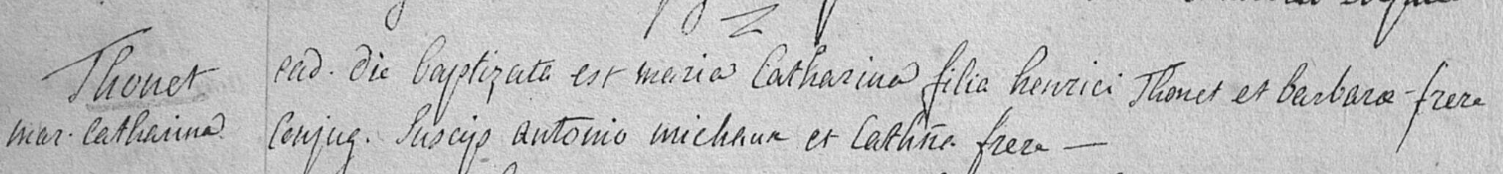 Thonet
mar. Catharina
ead. die baptizata est maria Catharina filia henrici Thonet et barbara frere
Conjug. Suscip antonio michaux et Cathña frere —